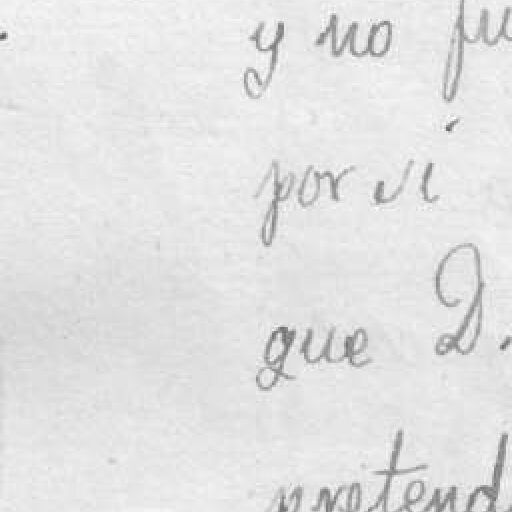 y no fu
por si
que D.
pretend